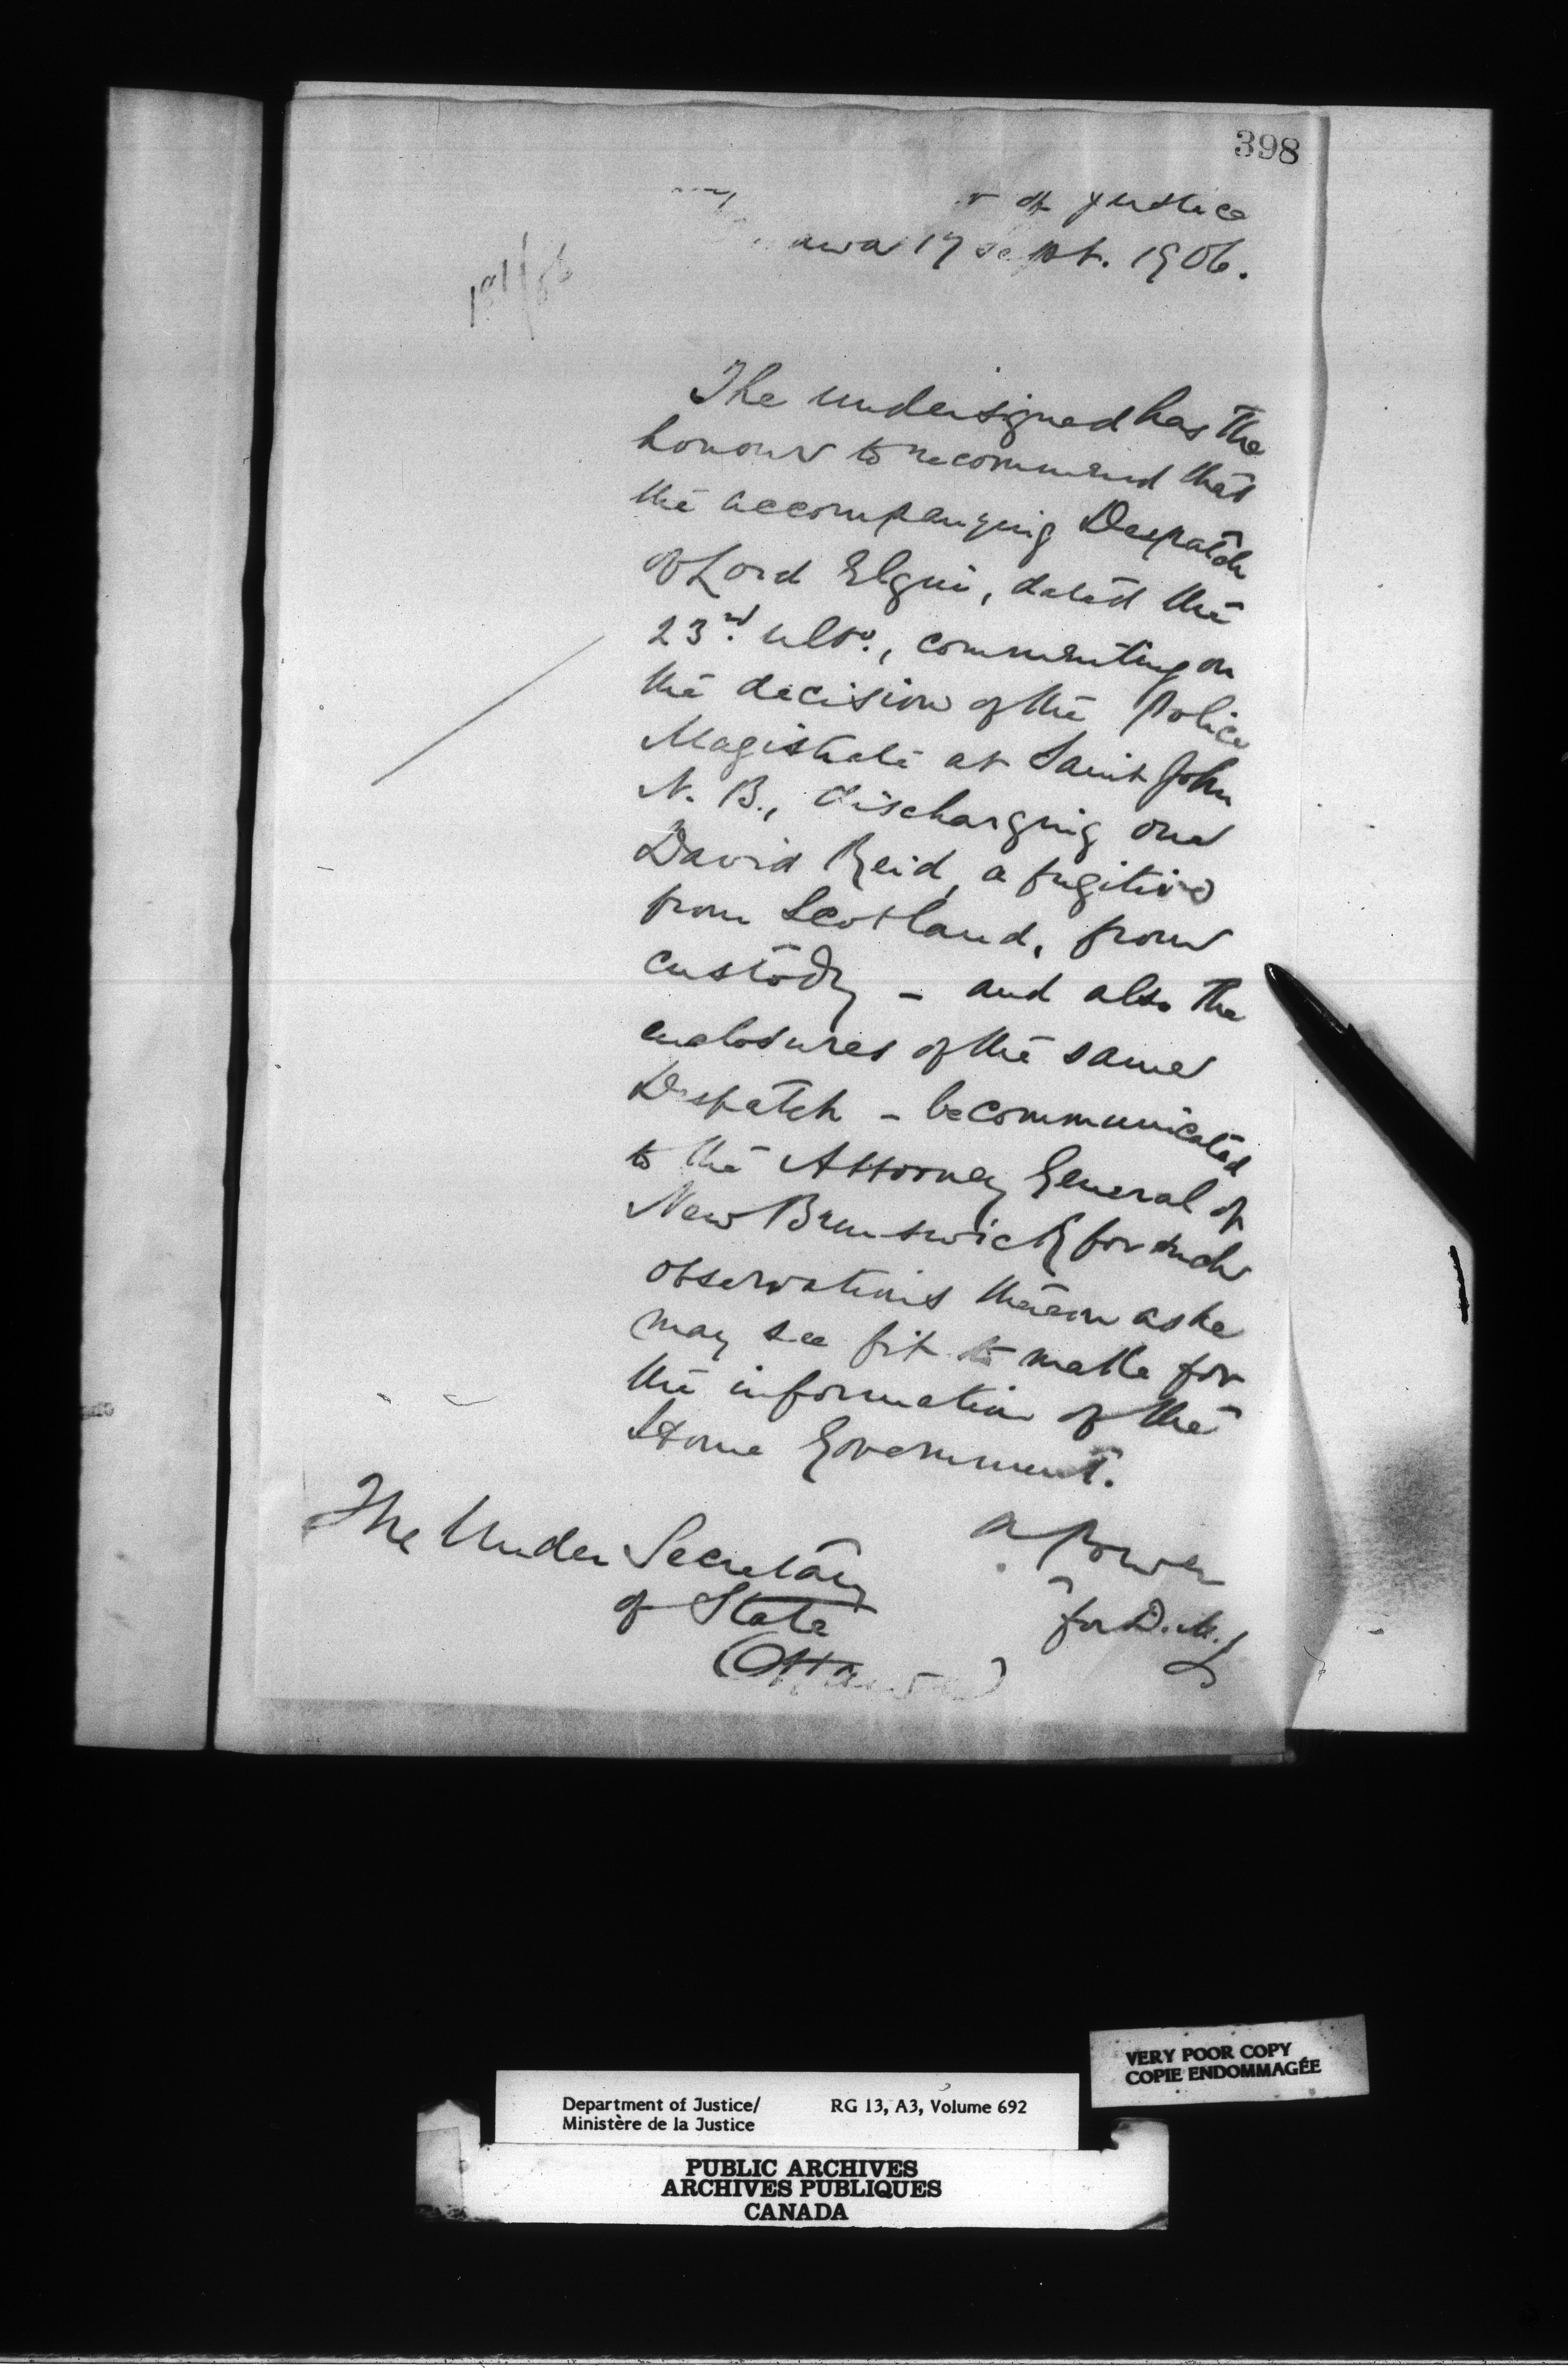 398
of Justice
awa 17 Sept. 1906.
181/06
The undersigned has the
honour to recommend that
the accompanying Despatch
of Lord Elgin, dated the
23rd. ulto., commenting on
the decision of the Police
Magistrate at Saint John
N. B., discharging one
David Reid, a fugitive
from Scotland, from
custody - and also the
enclosures of the same
Despatch - be communicated
to the Attorney General of
New Brunswick for such
observations thereon as he
may see fit to make for
the information of the
Home Government.
The Under Secretary
of State
Ottawa
A Power
for D.M.J
VERY POOR COPY
COPIE ENDOMMAGÉE
Department of Justice/ RG 13, A3, Volume 692
Ministère de la Justice
PUBLIC ARCHIVES
ARCHIVES PUBLIQUES
CANADA